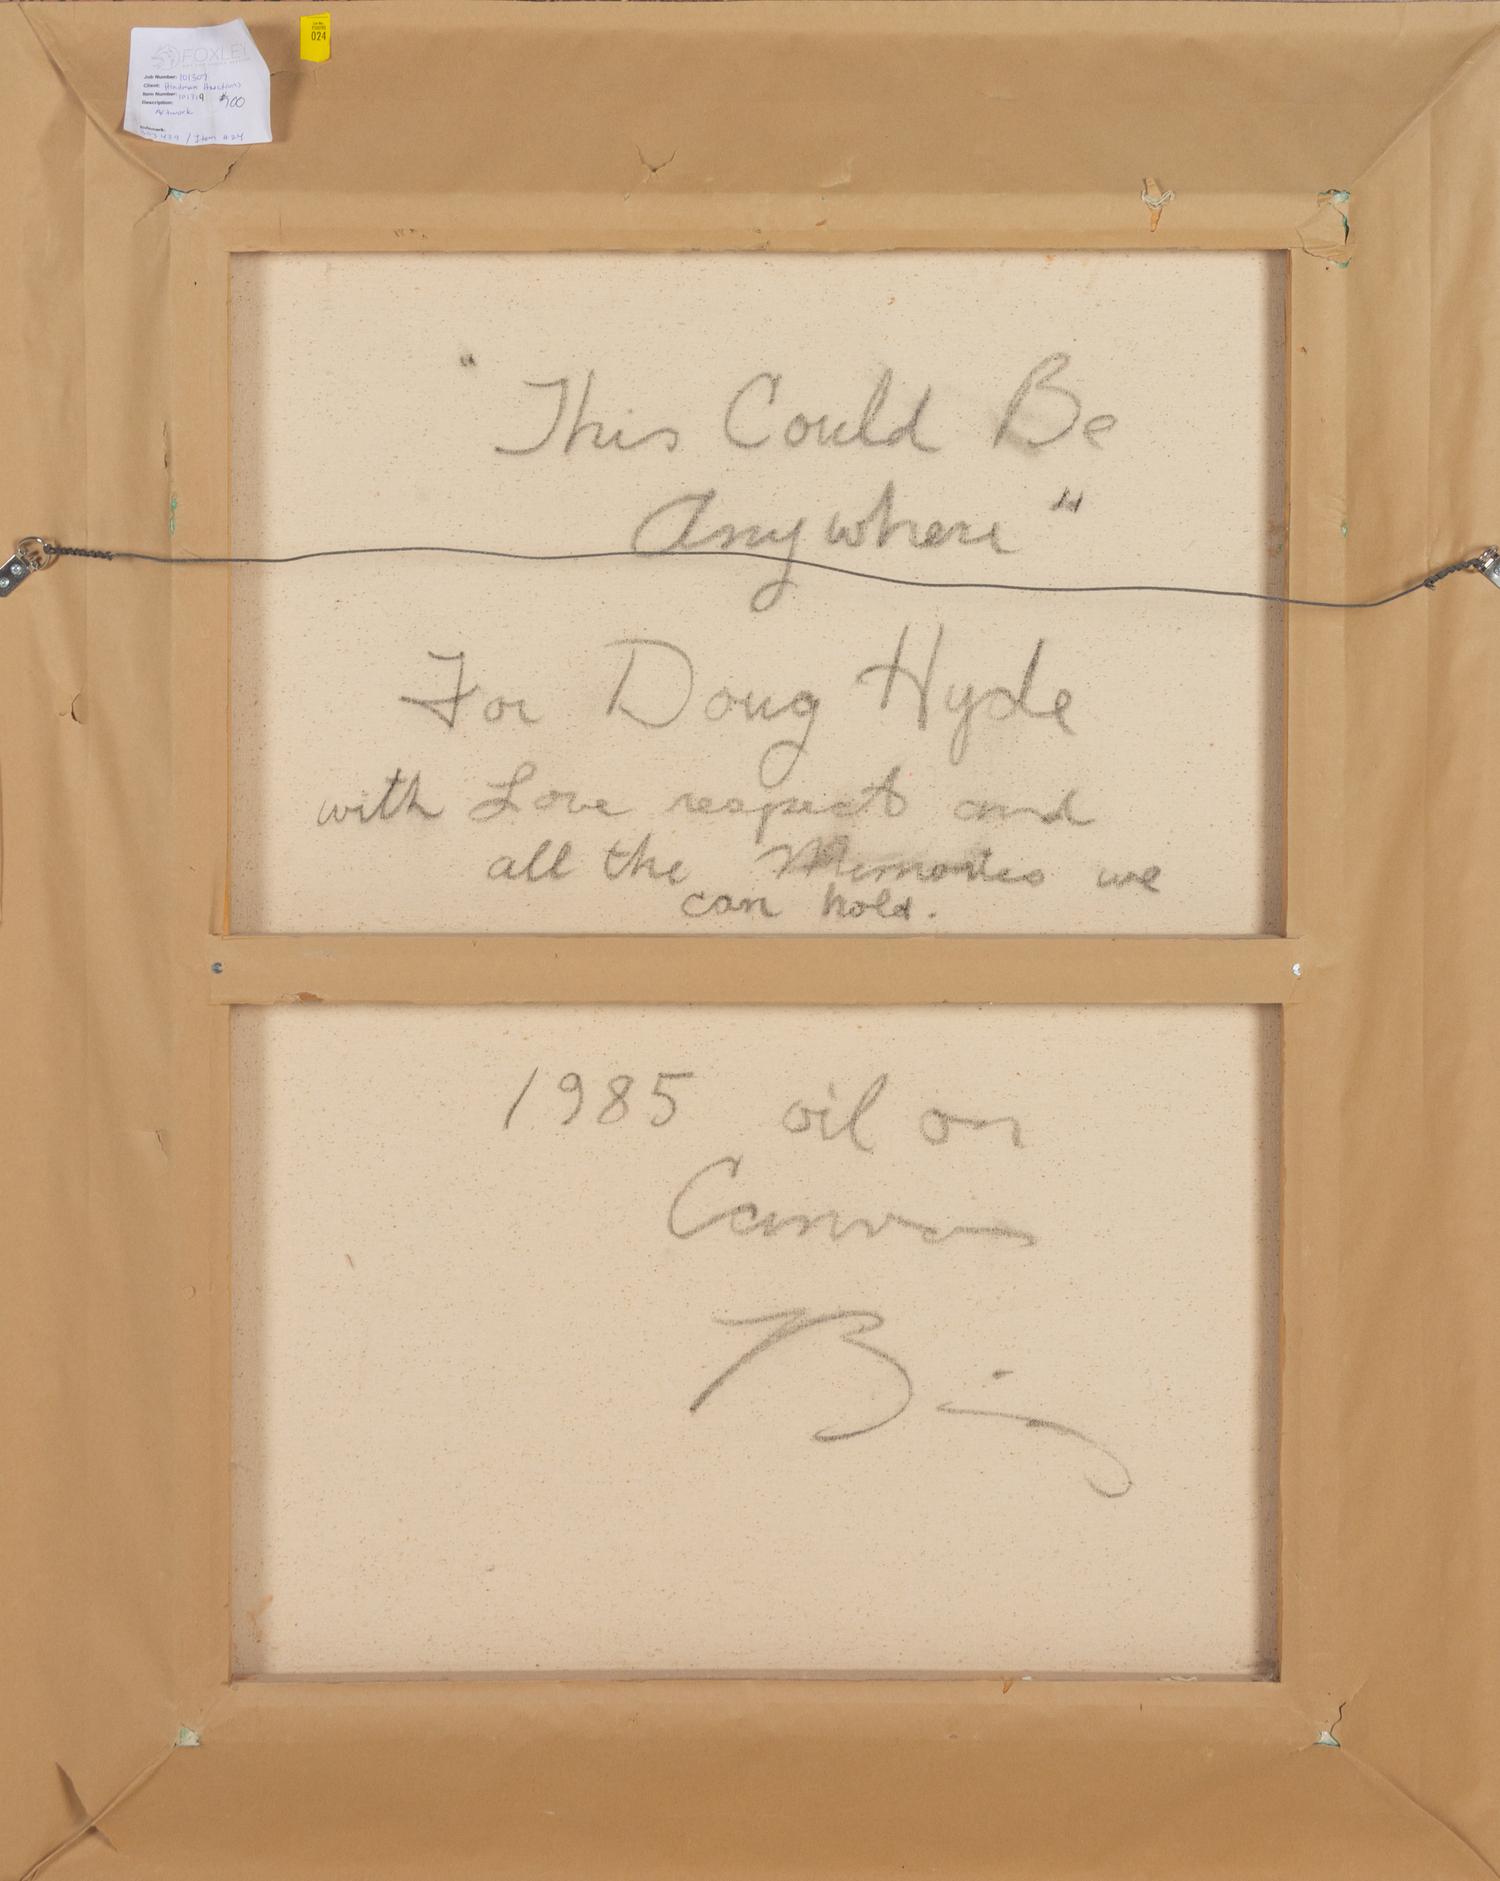 FOXLEY
Job Number: 101307
Client: Hindman Auctions
Item Number: 101319 $700
Description:
Artwork
/ Item #24
024
" This Could Be
Anywhere "
For Doug Hyde
with Love respect and
all the Memories we
can hold.
1985 oil on
Canvas